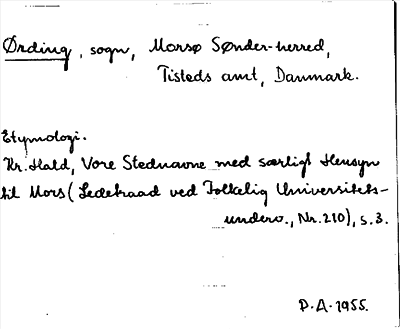 Ørding, sogn, Morsø Sønder-herred,
Tisteds amt, Danmark.
Etymologi.
Kr. Hald, Vore Stednavne med særligt Hensyn
til Mors (Ledetraad ved Folkelig Universitets-
underv., Nr. 210), s. 3.
P.A. 1955.